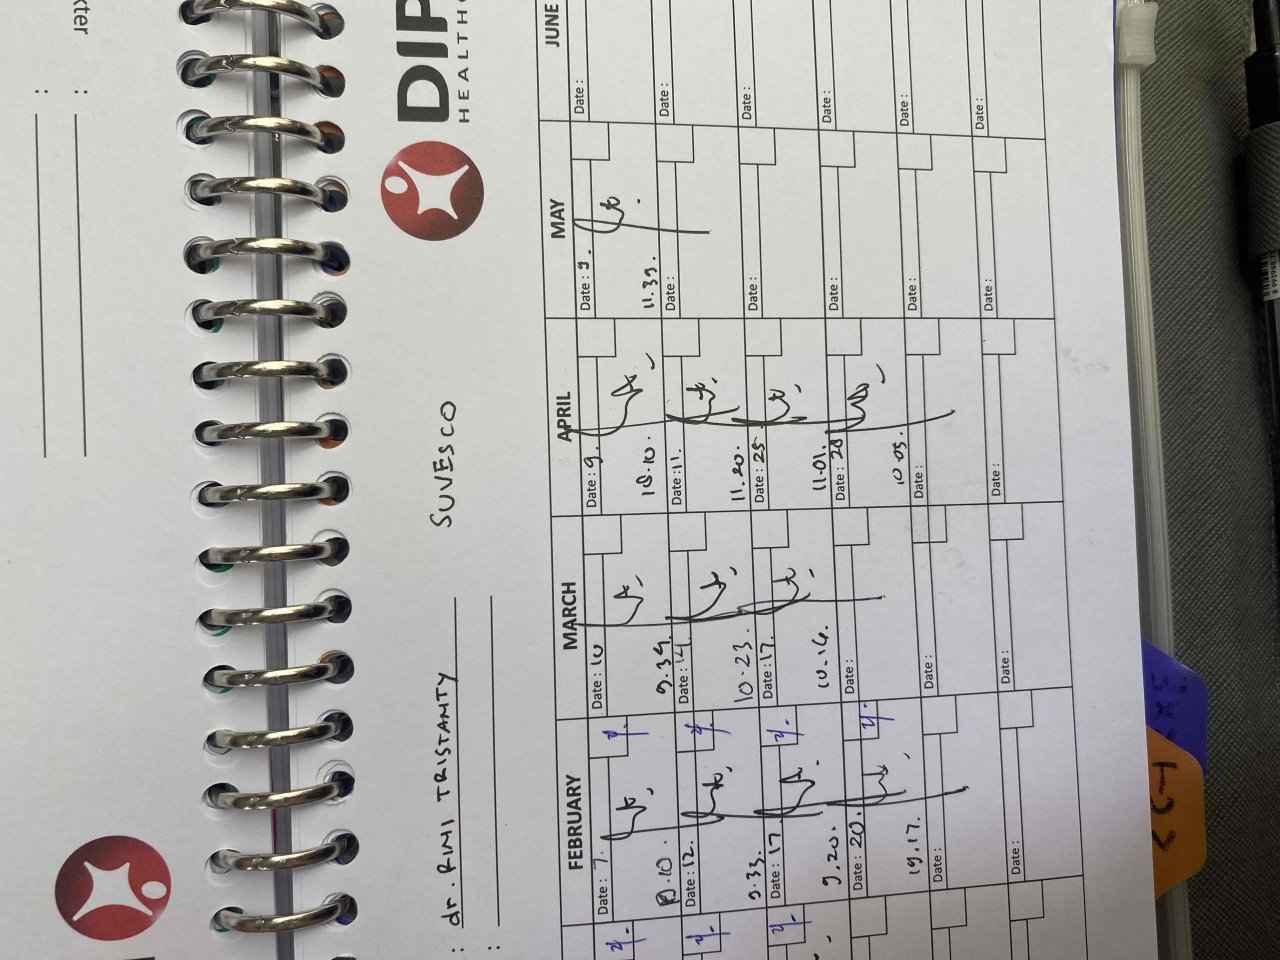 xter
:
:
DIP
HEALTH
: dr. RIMI TRISTANTY
SUVESCO
:
FEBRUARY MARCH APRIL MAY JUNE
Date: 7. Date: 10 Date: 9. Date: 9. Date:
10.10. 9.34. 10.10. 11.39.
Date: 12. Date: 14. Date: 11. Date: Date:
9.33. 10.23. 11.20.
Date: 17 Date: 17. Date: 25 Date: Date:
9.20. 10.16. 11.01.
Date: 20. Date: Date: 28 Date: Date:
19.17. 10.05.
Date: Date: Date: Date: Date:
Date: Date: Date: Date: Date: